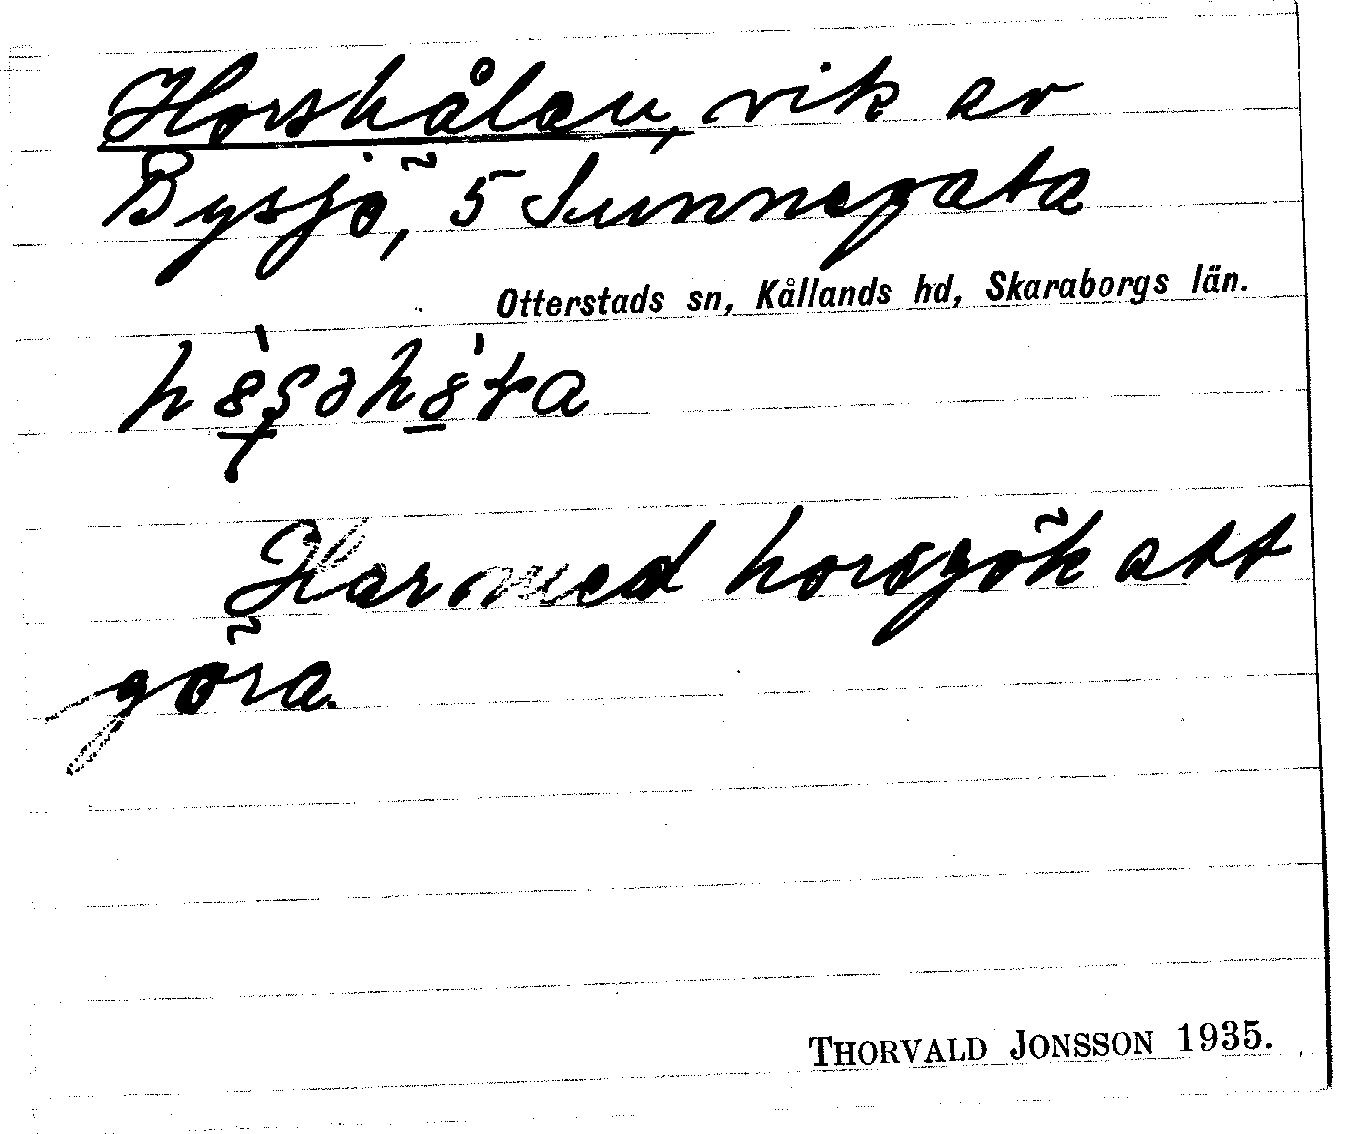 Horshålan, vik av
Bysjö, 5 Sunnegata
Otterstads sn, Kållands hd, Skaraborgs län.
Har med horsgök att
göra.
THORVALD JONSSON 1935.